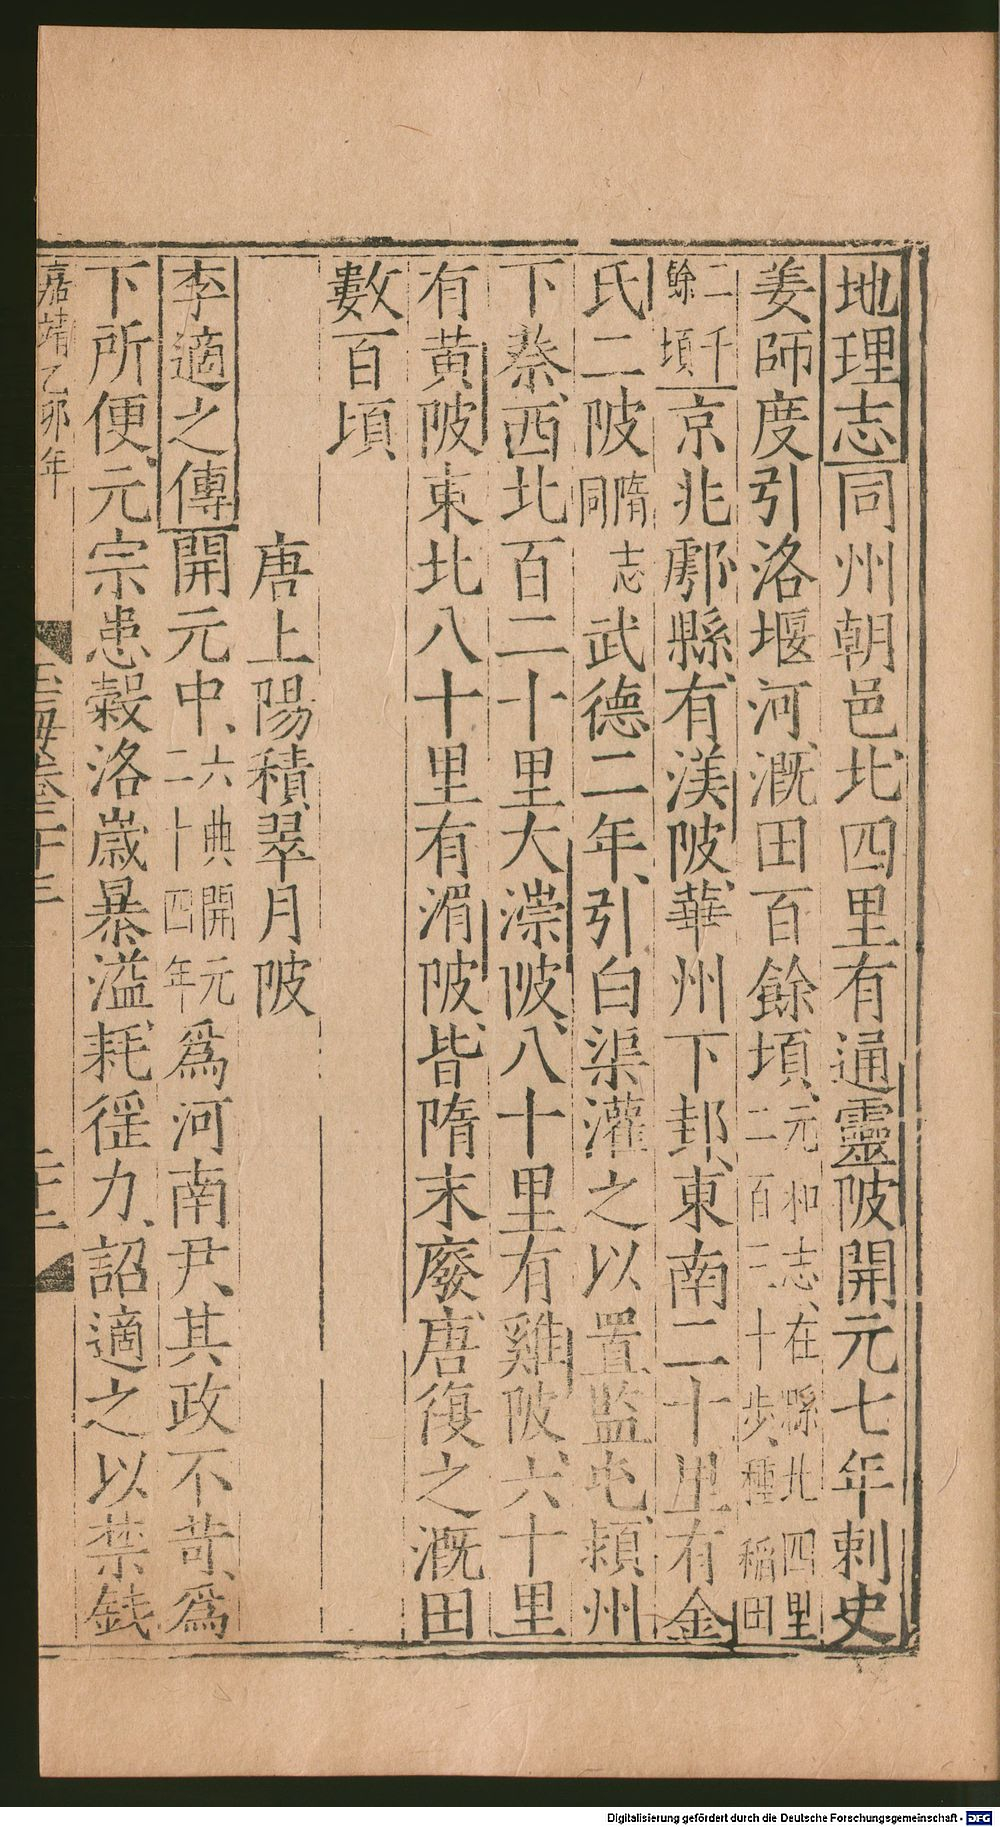 地理志同州朝邑北四里有通靈陂開元七年刺史
姜師度引洛堰河溉田百餘頃元和志在縣北四里二百三十步種稻田
二千餘頃京兆鄠縣有渼陂華州下邽東南二十里有金
氏二陂隋志同武德二年引白渠灌之以置監屯潁州
下蔡西北百二十里大漴陂八十里有雞陂六十里
有黄陂東北八十里有湄陂皆隋末廢唐復之溉田
數百頃
唐上陽積翠月陂
李適之傳開元中六典開元二十四年爲河南尹其政不苛爲
下所便元宗患穀洛歲暴溢耗徭力詔適之以禁錢
嘉靖乙卯年
玉海卷二十三
二十二
Digitalisierung gefördert durch die Deutsche Forschungsgemeinschaft - DFG